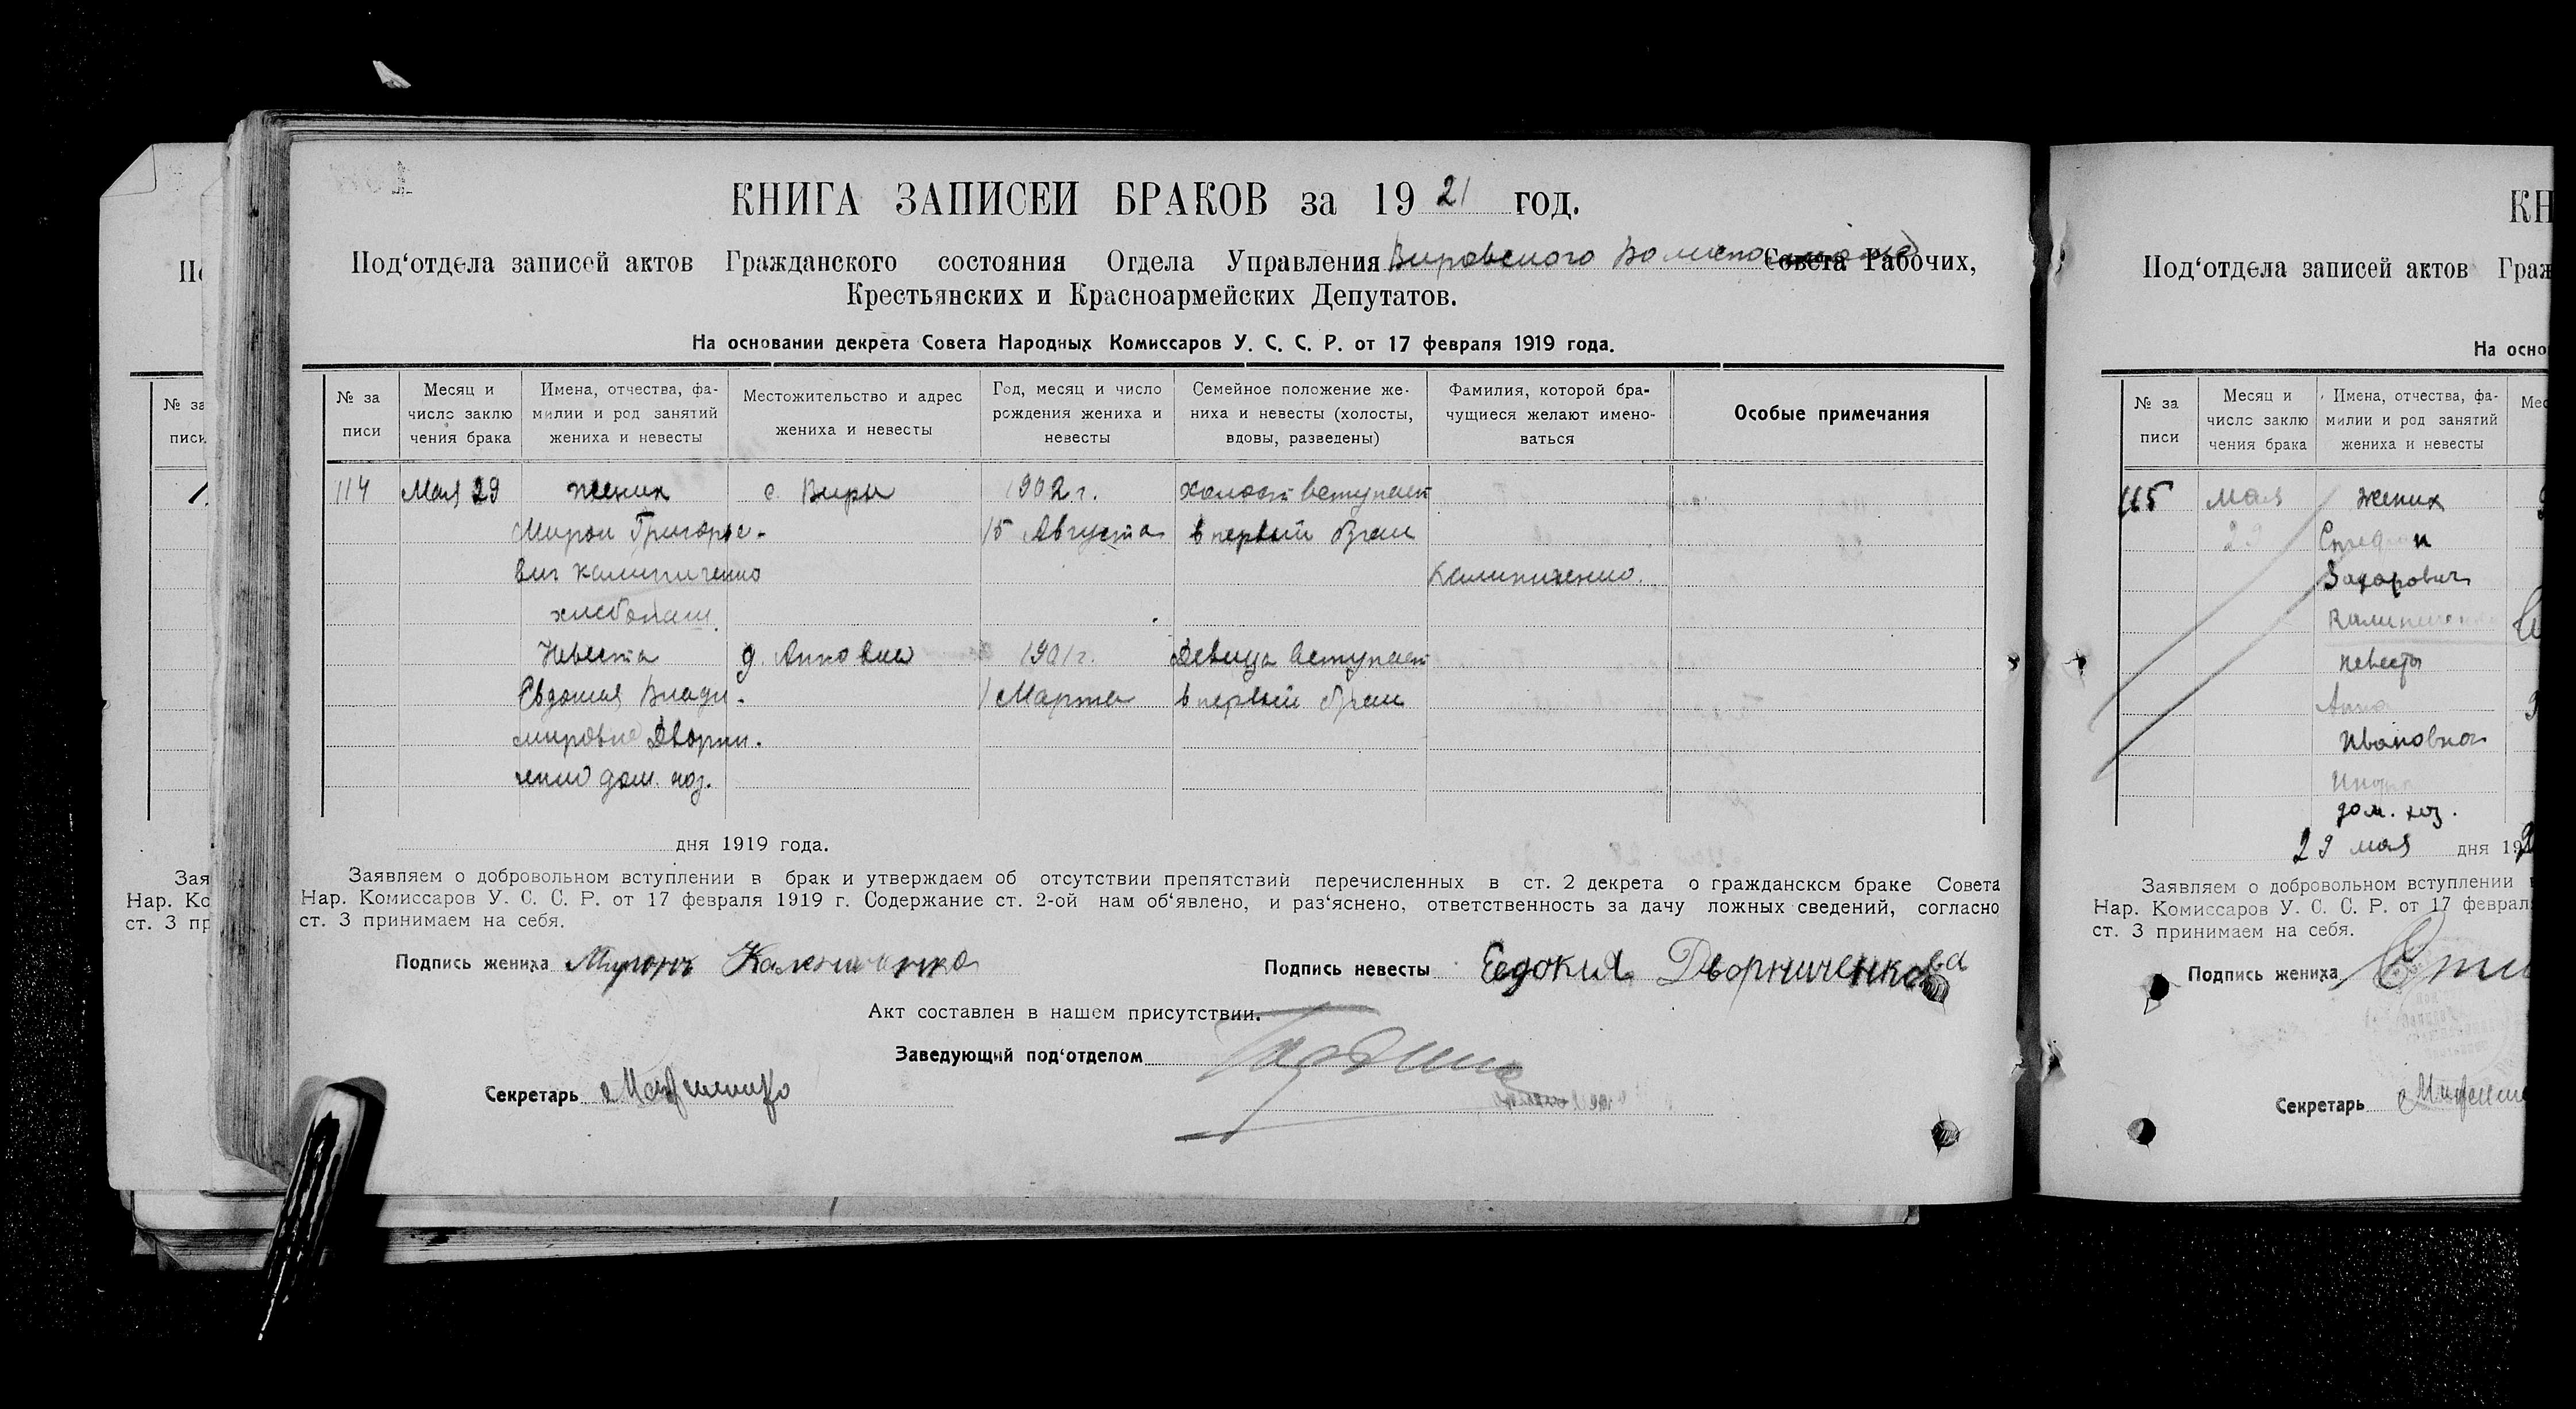 КНИГА ЗАПИСЕЙ БРАКОВ за 1921 год.
Под‘отдела записей актов Гражданского состояния Отдела Управления Вировского Совета Рабочих,
Крестьянских и Красноармейских Депутатов.
На основании декрета Совета Народных Комиссаров У. С. С. Р. от 17 февраля 1919 года.
№ за писи
Месяц и число заклю чения брака
Имена, отчества, фа- милии и род занятий жениха и невесты
Местожительство и адрес жениха и невесты
Год, месяц и число рождения жениха и невесты
Семейное положение же- ниха и невесты (холосты, вдовы, разведены)
Фамилия, которой бра- чущиеся желают имено- ваться
Особые примечания
114 Мая 29 жених с. Виры 1902 г. холост вступает
Мирон Григорье- 15 Августа в первый брак
вич Калиниченко Калиниченко.
хлебопаш.
Невеста д. Анновка 1901 г. Девица вступает
Евдокия Влади- 1 Марта в первый брак
мировна Дворни-
ченко дом. хоз.
дня 1919 года.
Заявляем о добровольном вступлении в брак и утверждаем об отсутствии препятствий перечисленных в ст. 2 декрета о гражданском браке Совета
Нар. Комиссаров У. С. С. Р. от 17 февраля 1919 г. Содержание ст. 2-ой нам об‘явлено, и раз‘яснено, ответственность за дачу ложных сведений, согласно
ст. 3 принимаем на себя.
Подпись жениха Миронъ Калениченко Подпись невесты Евдокия Дворниченкова
Акт составлен в нашем присутствии.
Заведующий под‘отделом
Секретарь
КН
Под‘отдела записей актов Граж
На осно
№ за писи
Месяц и число заклю чения брака
Имена, отчества, фа- милии и род занятий жениха и невесты
Мес
115 мая жених
29 Стефан
Захарович
Калиниченко
невеста
Анна
Ивановна
дом. хоз.
29 мая дня 192
Заявляем о добровольном вступлении в
Нар. Комиссаров У. С. С. Р. от 17 феврал
ст. 3 принимаем на себя.
Подпись жениха
Секретарь
По
№ за
писи
Зая
Нар. Ко
ст. 3 пр